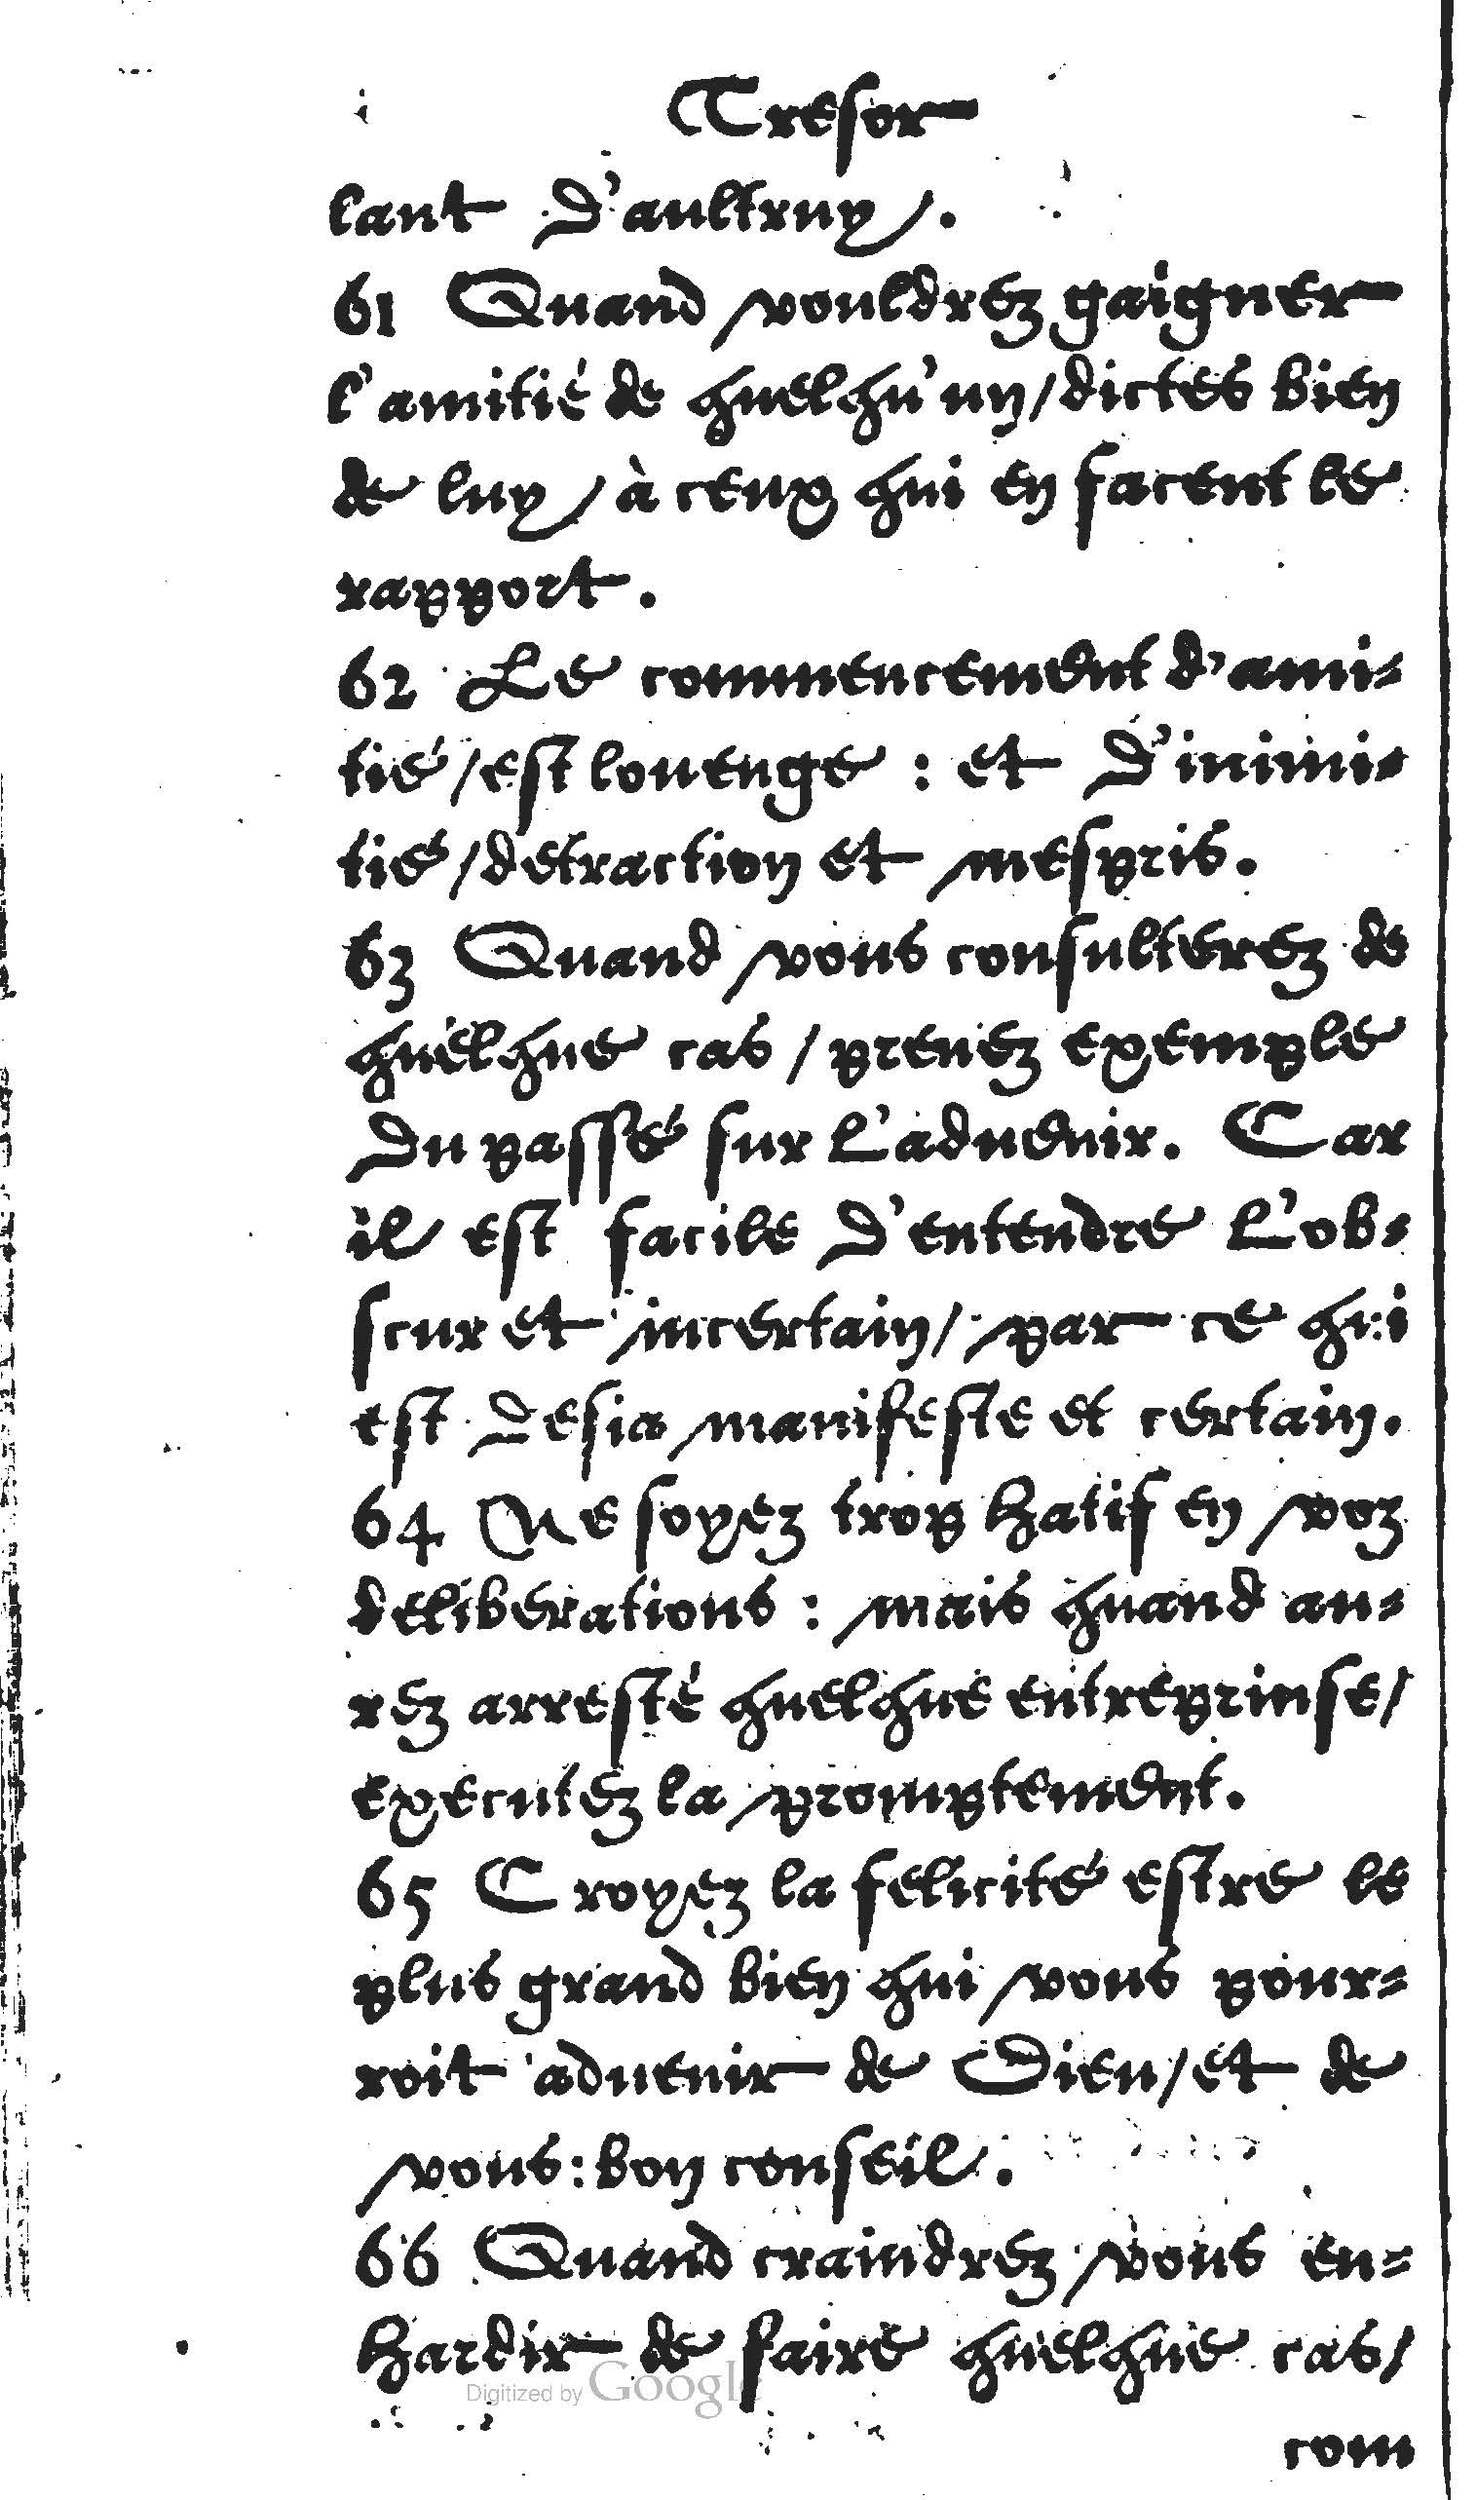 Tresor
lant d'aultruy.
61 Quand vouldrez gaigner
l'amitié de quelqu'un/dictes bien
de luy/à ceux qui en facent le
rapport.
62 Le commencement d'ami-
tié/est louenge : et d'inimi-
tié/detraction et mespris.
63 Quand vous consulterez de
quelque cas/prenez exemple
du passé sur l'aduenir. Car
il est facile d'entendre l'ob-
scur et incertain/par ce qui
est desia manifeste et certain.
64 Ne soyez trop hatif en voz
deliberations : mais quand au-
rez arresté quelque entreprinse/
executez la promptement.
65 Croyez la felicité estre le
plus grand bien qui vous pour-
roit aduenir de Dieu/et de
vous:bon conseil.
66 Quand craindrez vous en-
hardir de faire quelque cas/
com
Digitized by Google